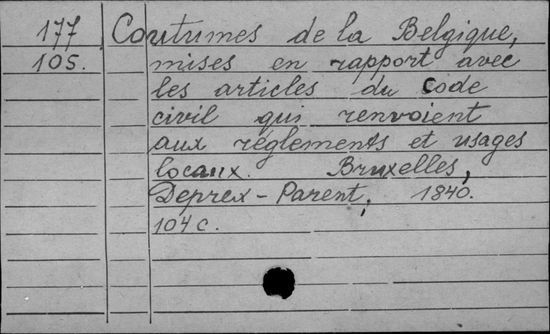 177 Coutumes de la Belgique,
105. mises en rapport avec
les articles du Code
civil qui renvoient
aux réglements et usages
locaux. Bruxelles,
Deprex-Parent, 1840.
104 c.